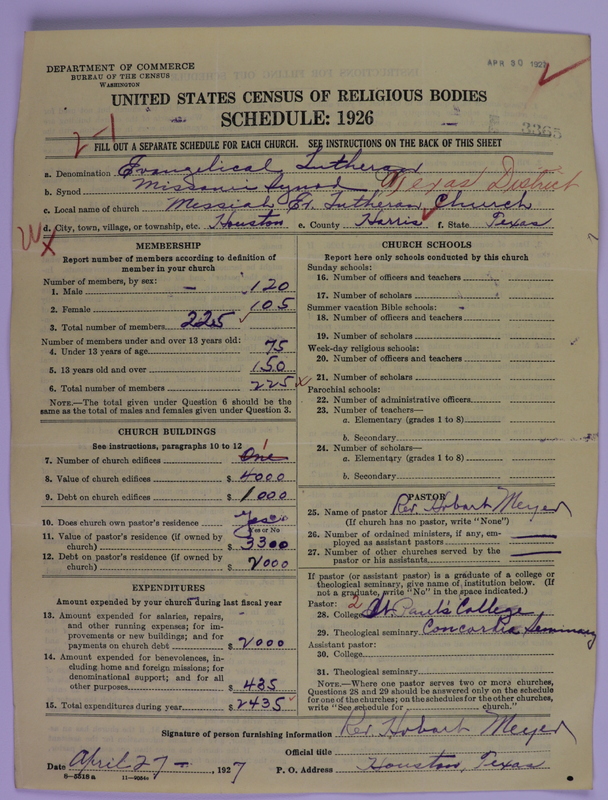 DEPARTMENT OF COMMERCE
BUREAU OF THE CENSUS
WASHINGTON
APR 30 1927
UNITED STATES CENSUS OF RELIGIOUS BODIES
SCHEDULE: 1926
3365
2-1
FILL OUT A SEPARATE SCHEDULE FOR EACH CHURCH. SEE INSTRUCTIONS ON THE BACK OF THIS SHEET
a. Denomination Evangelical Lutheran
b. Synod Missouri Synod Texas District
c. Local name of church Messiah Ev. Lutheran Church
d. City, town, village, or township, etc. Houston e. County Harris f. State Texas
MEMBERSHIP
Report number of members according to definition of
member in your church
Number of members, by sex:
1. Male 120
2. Female 105
3. Total number of members 225
Number of members under and over 13 years old:
4. Under 13 years of age 75
5. 13 years old and over 150
6. Total number of members 225
NOTE.—The total given under Question 6 should be the
same as the total of males and females given under Question 3.
CHURCH BUILDINGS
See instructions, paragraphs 10 to 12
7. Number of church edifices One 1
8. Value of church edifices $ 4000
9. Debt on church edifices $ 1000
10. Does church own pastor's residence Yes
Yes or No
11. Value of pastor's residence (if owned by
church) $ 3300
12. Debt on pastor's residence (if owned by
church) $ 2000
EXPENDITURES
Amount expended by your church during last fiscal year
13. Amount expended for salaries, repairs,
and other running expenses; for im-
provements or new buildings; and for
payments on church debt $ 2000
14. Amount expended for benevolences, in-
cluding home and foreign missions; for
denominational support; and for all
other purposes $ 435
15. Total expenditures during year $ 2435
CHURCH SCHOOLS
Report here only schools conducted by this church
Sunday schools:
16. Number of officers and teachers
17. Number of scholars
Summer vacation Bible schools:
18. Number of officers and teachers
19. Number of scholars
Week-day religious schools:
20. Number of officers and teachers
21. Number of scholars
Parochial schools:
22. Number of administrative officers
23. Number of teachers—
a. Elementary (grades 1 to 8)
b. Secondary
24. Number of scholars—
a. Elementary (grades 1 to 8)
b. Secondary
PASTOR
25. Name of pastor Rev. Hobart Meyer
(If church has no pastor, write "None")
26. Number of ordained ministers, if any, em-
ployed as assistant pastors
27. Number of other churches served by the
pastor or his assistants
If pastor (or assistant pastor) is a graduate of a college or
theological seminary, give name of institution below. (If
not a graduate, write "No" in the space indicated.)
Pastor:
28. College 2 St. Paul's College
29. Theological seminary Concordia Seminary
Assistant pastor:
30. College
31. Theological seminary
NOTE.—Where one pastor serves two or more churches,
Questions 28 and 29 should be answered only on the schedule
for one of the churches; on the schedules for the other churches,
write "See schedule for church."
Signature of person furnishing information Rev. Hobart Meyer
Official title
Date April 27, 1927 P. O. Address Houston, Texas
6—5518 a